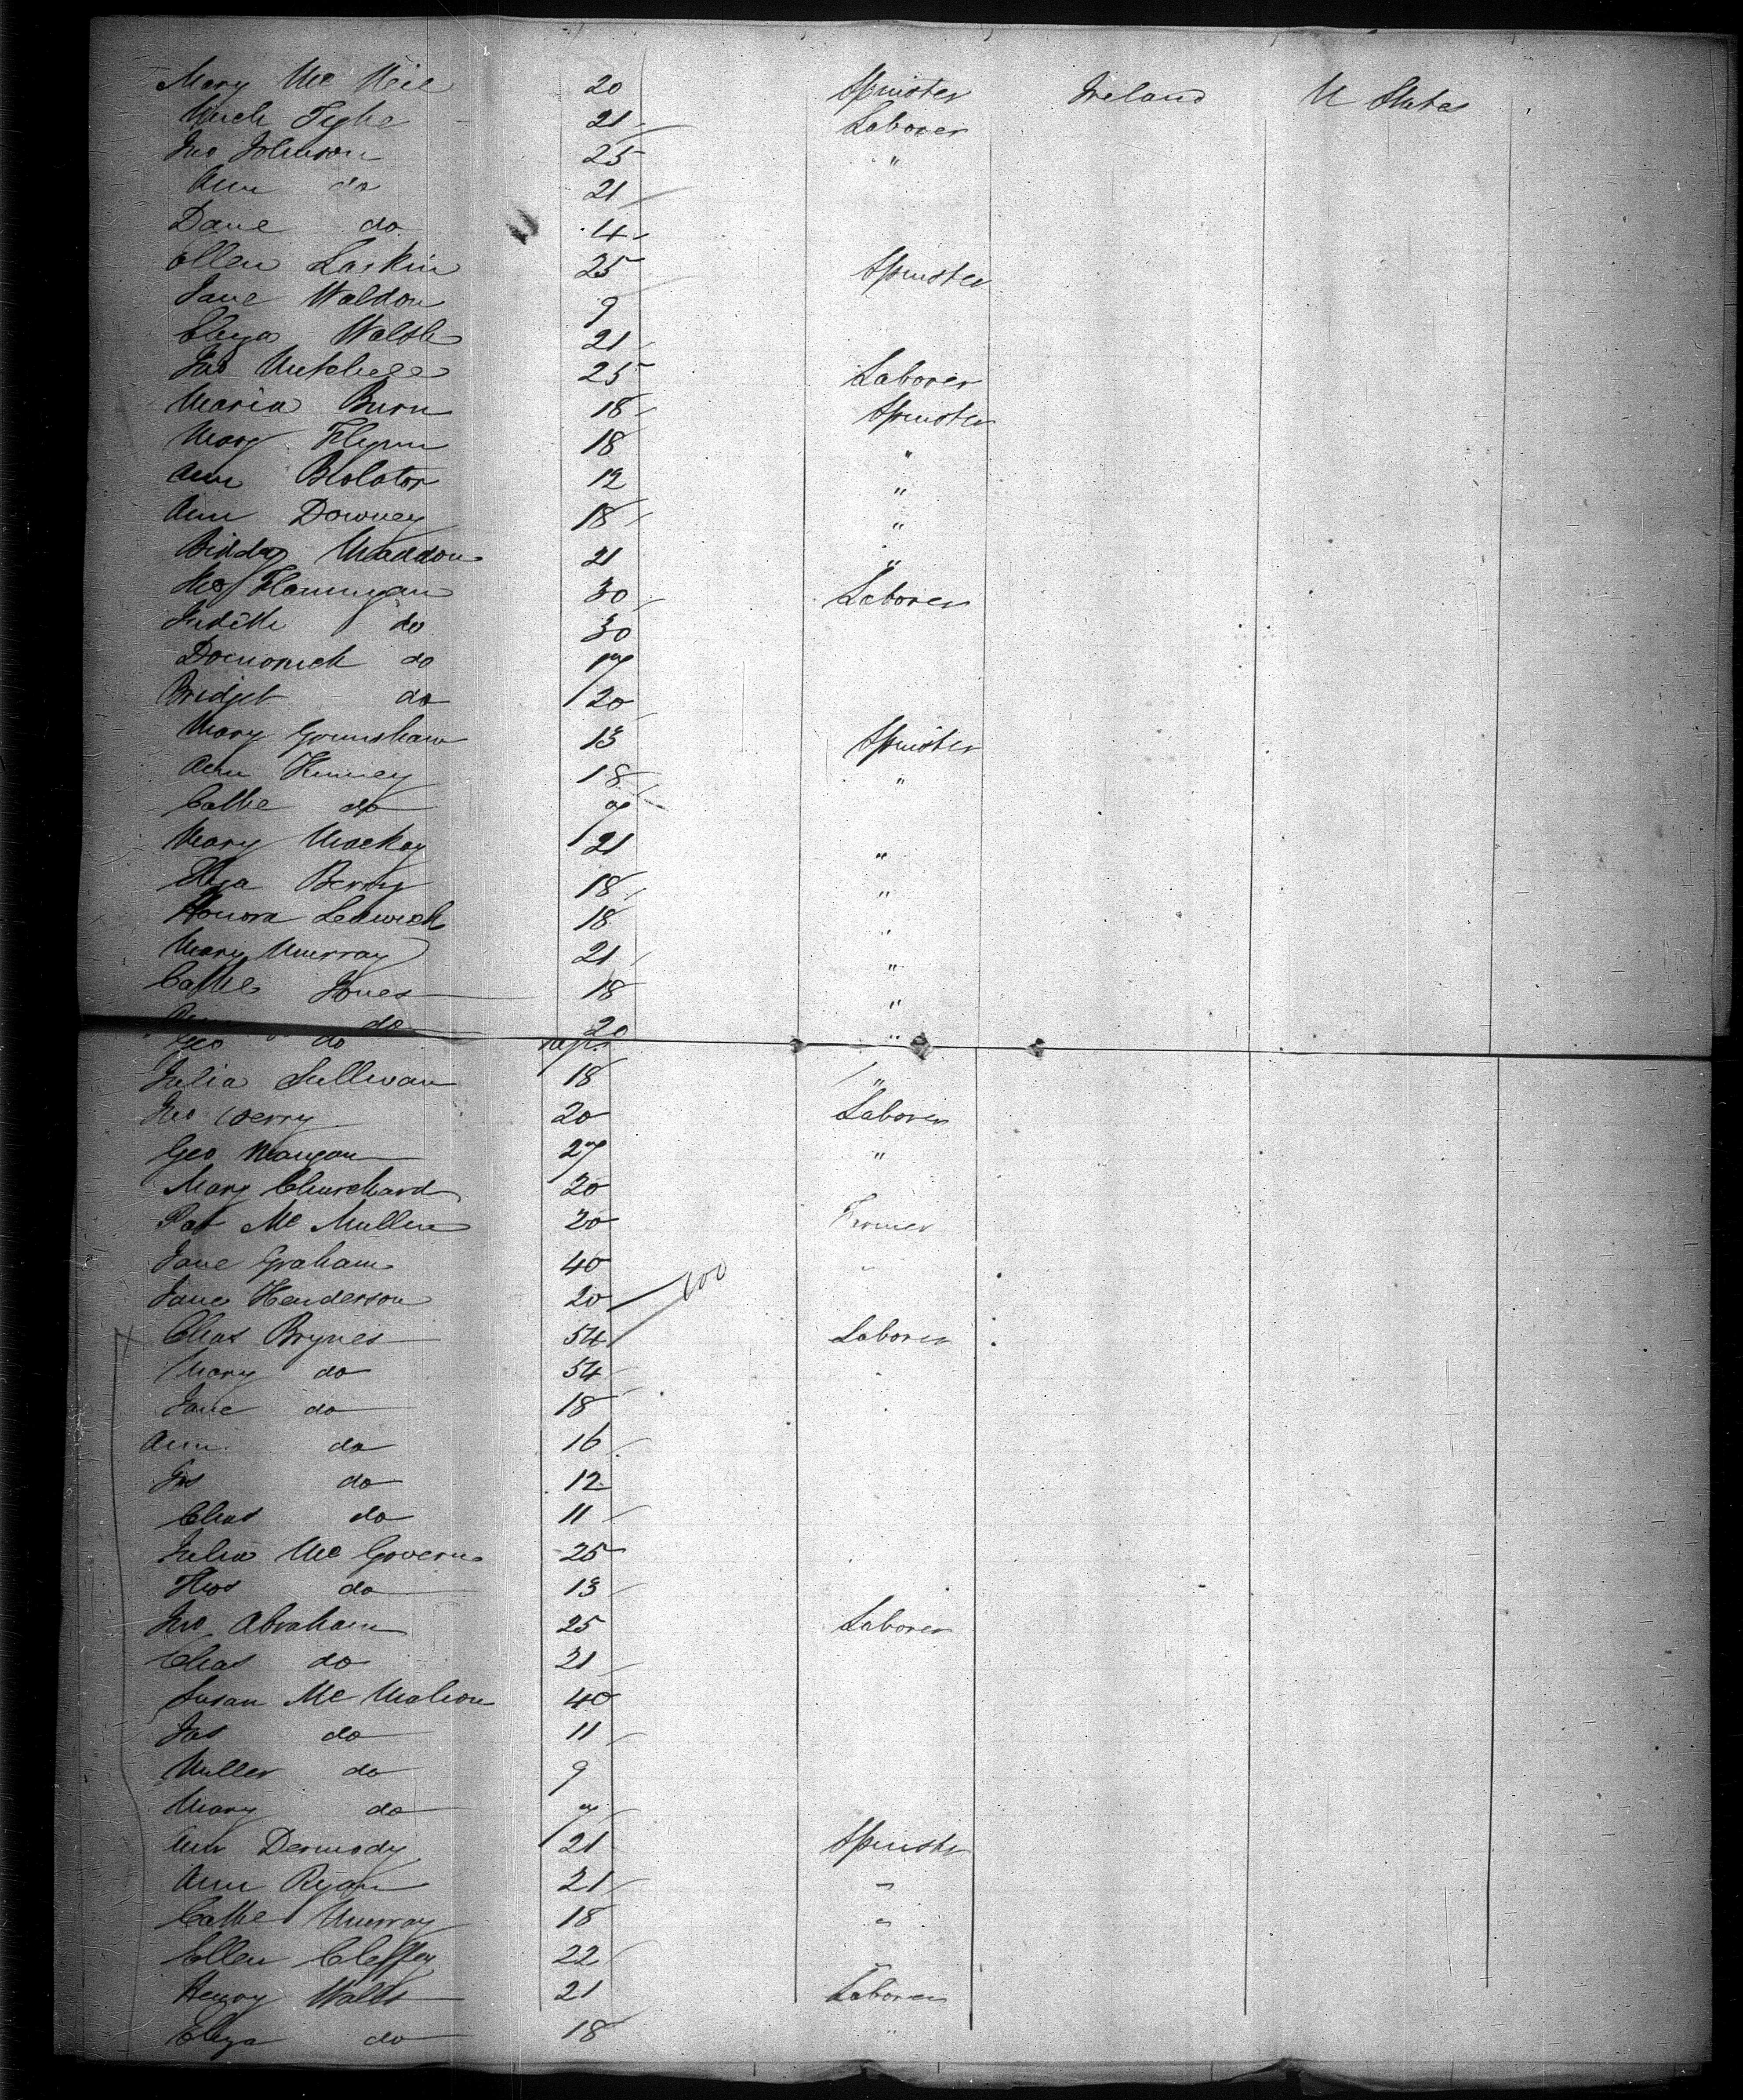 Mary Mc Neil 20 Spinster Ireland U States
Mich Tighe 21 Laborer
Jno Johnson 25 "
Ann do 21
Dane do 4
Ellen Larkin 25 Spinster
Jane Waldon 9
Eliza Walsh 21
Jas Mitchell 25 Laborer
Maria Burn 18 Spinster
Mary Flynn 18 "
Ann 12 "
Ann Downey 18 "
Biddy Maddon 21 "
Flannigan 30 Laborer
Judith do 30
Dominick do 17
Bridget do 20
Mary Grimshaw 13 Spinster
Ann Kinney 18 "
Cathe do 7
Mary Mackay 21 "
Eliza Berry 18 "
Honora Ledwich 18 "
Mary Murray 21 "
Cathe Jones 18 "
Ann do 20 "
Geo do
Julia Sullivan 18 "
Jno Berry 20 Laborer
Geo Mangan 27 "
Mary Churchard 20
Pat Mc Mullen 20 Farmer
Jane Graham 40
Jane Henderson 20 100
Chas Brynes 54 Laborer
Mary do 54
Jane do 18
Ann do 16
Jas do 12
Chas do 11
Julia Mc Govern 25
Thos do 13
Jno Abraham 25 Laborer
Chas do 21
Susan Mc Mahon 40
Jas do 11
Miller do 9
Mary do 7
Ann Dermody 21 Spinster
Ann Ryan 21 "
Cathe Murray 18 "
Ellen Cleffey 22
Henry Walls 21 Laborer
Eliza do 18